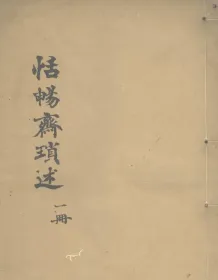 恬暢齋瑣述
一冊